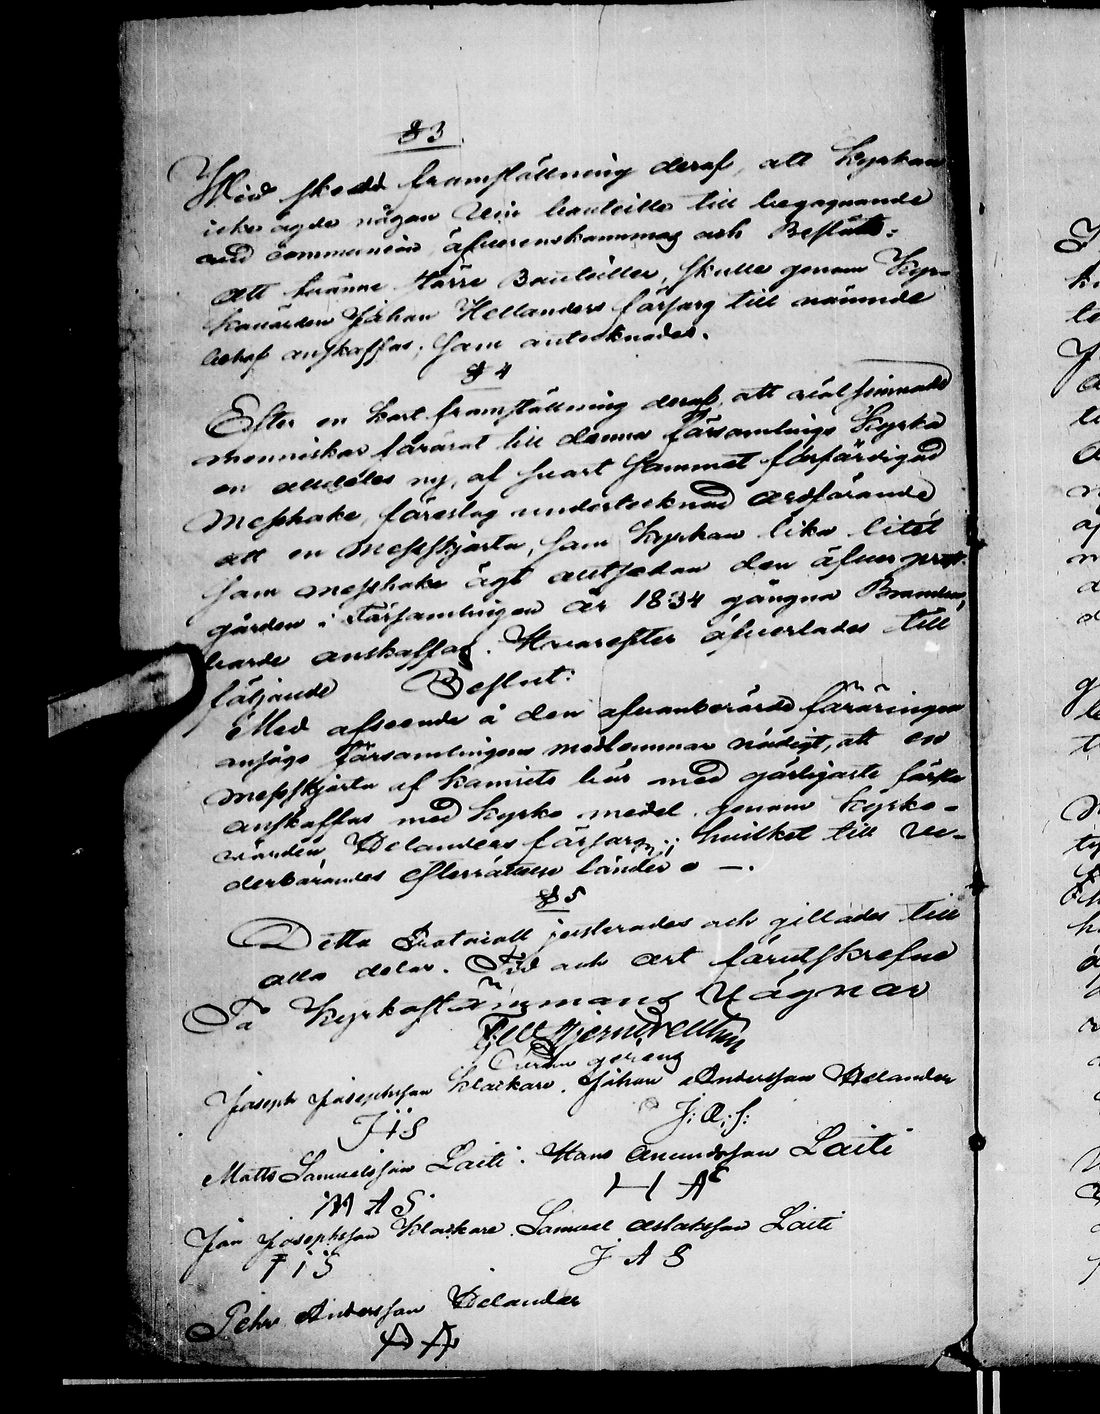 § 3
Wid skedd framställning deraf, att Kyrkan
icke ägde någon Vin bouteille till begagnande
vid communion, öfverenskommos och Beslöts:
att tvänne större Bouteiller, skulle genom Kyr-
kovärden Johan Hellanders försorg till nämnde
behof anskaffas; som antecknades.
§ 4
Efter en kort framställning deraf, att välsinnade
menniskor förärat till denna församlings Kyrka
en alldeles ny, af svart sammet förfärdigad
Messhake, föreslog undertecknad ordförande
att en Messskjorta, som Kyrkan lika litet
som messhake ägt alltsedan den öfver prest-
gården i församlingen år 1834 gångna Branden,
borde anskaffas. Hvarefter öfverlades till
följande Beslut:
Med afseende å den ofvanberörde föräringen
ansågo församlingens medlemmar nödigt, att en
messskjorta af bör med görligaste första
anskaffas med Kyrko medel genom Kyrko-
värden Delanders försorg; hvilket till Ve-
derbörandes efterrättelse länder. —.
§ 5
Detta Protocoll justerades och gillades till
alla delar. Tid och ort förutskrefne
På Kyrkostämmans Vägnar

Joseph Josephsson Klockare. Johan Andersson Delander
J I S J: A: S:
Matts Samuelsson Laiti. Hans Amundsson Laiti
M A S H A
Jon Josephsson Klockare. Samuel Aslaksson Laiti
J I S J A S
Pehr Andersson Delander